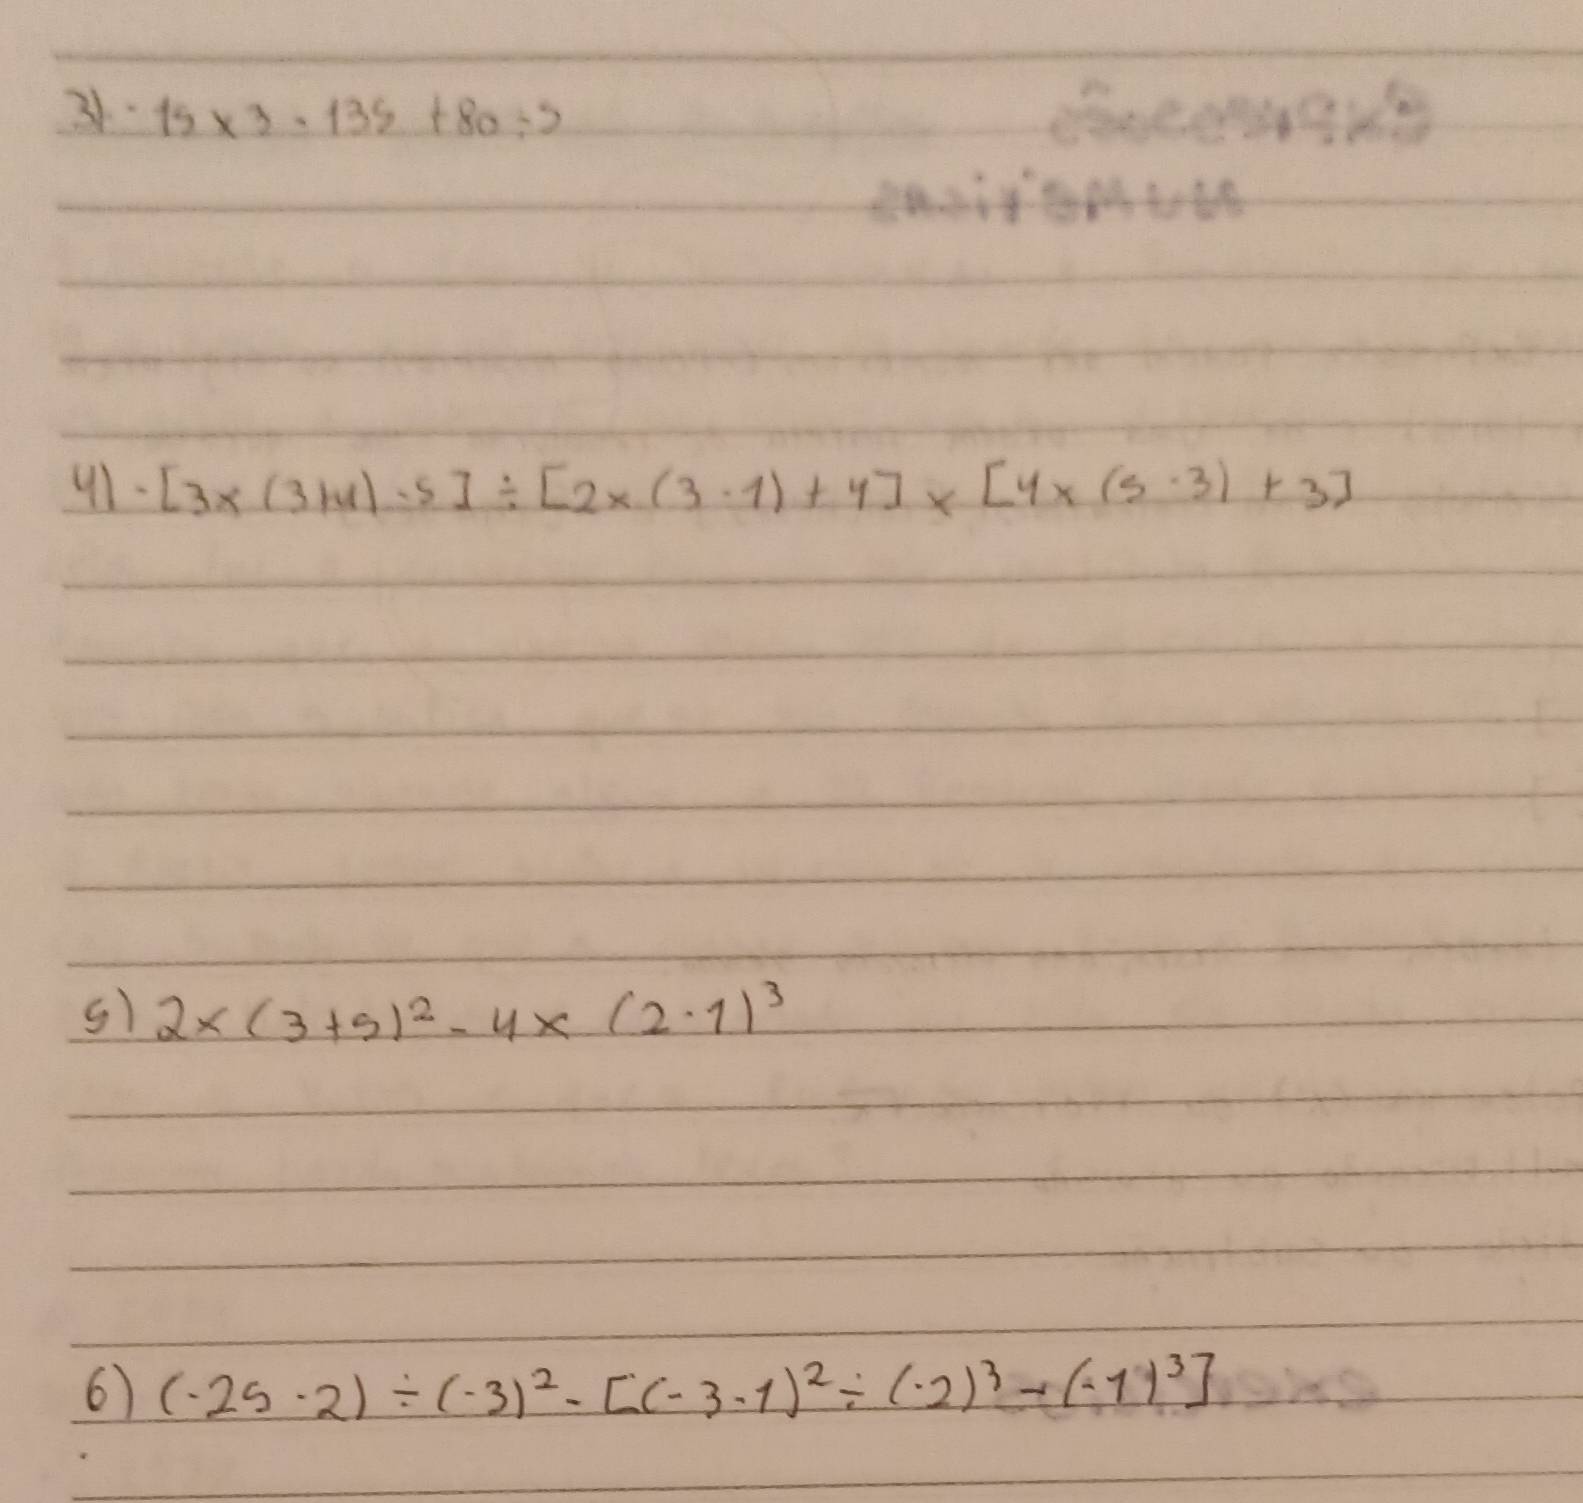 3) -15 x 3 - 135 + 80 ÷ 5
4) -[3x (3+4) - 5] ÷ [2x (3 - 1) + 4] x [4x (5 - 3) + 3]
5) 2x (3+5)² - 4x (2 - 1)³
6) (-25 - 2) ÷ (-3)² - [(-3 - 1)² ÷ (-2)³ - (-1)³]